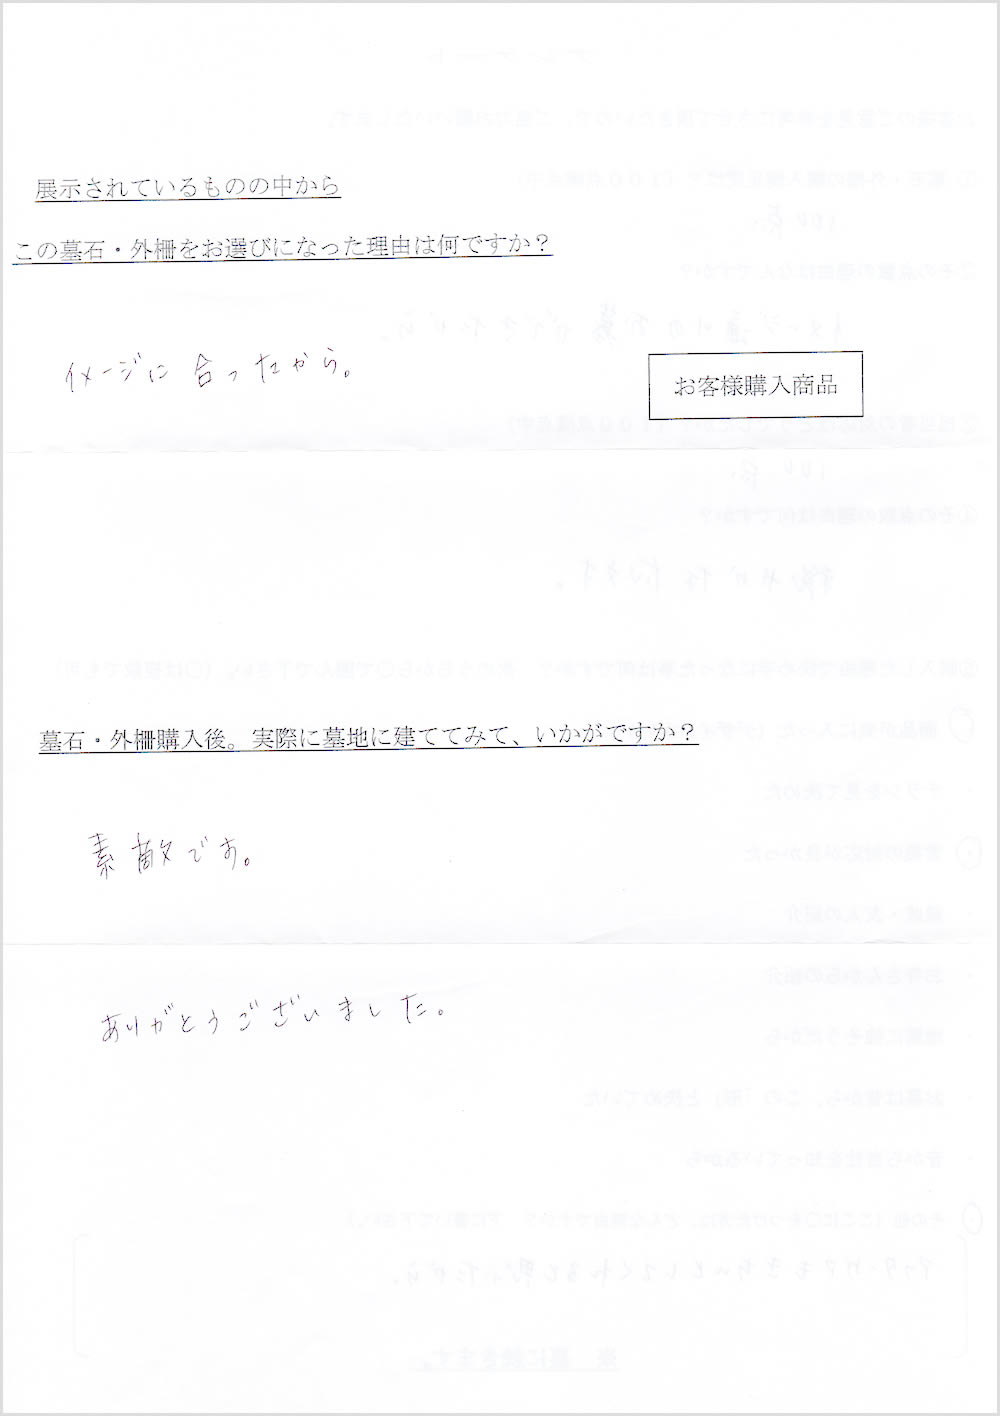 展示されているものの中から
この墓石・外柵をお選びになった理由は何ですか？
イメージに合ったから。
お客様購入商品
墓石・外柵購入後。実際に墓地に建ててみて、いかがですか？
素敵です。
ありがとうございました。